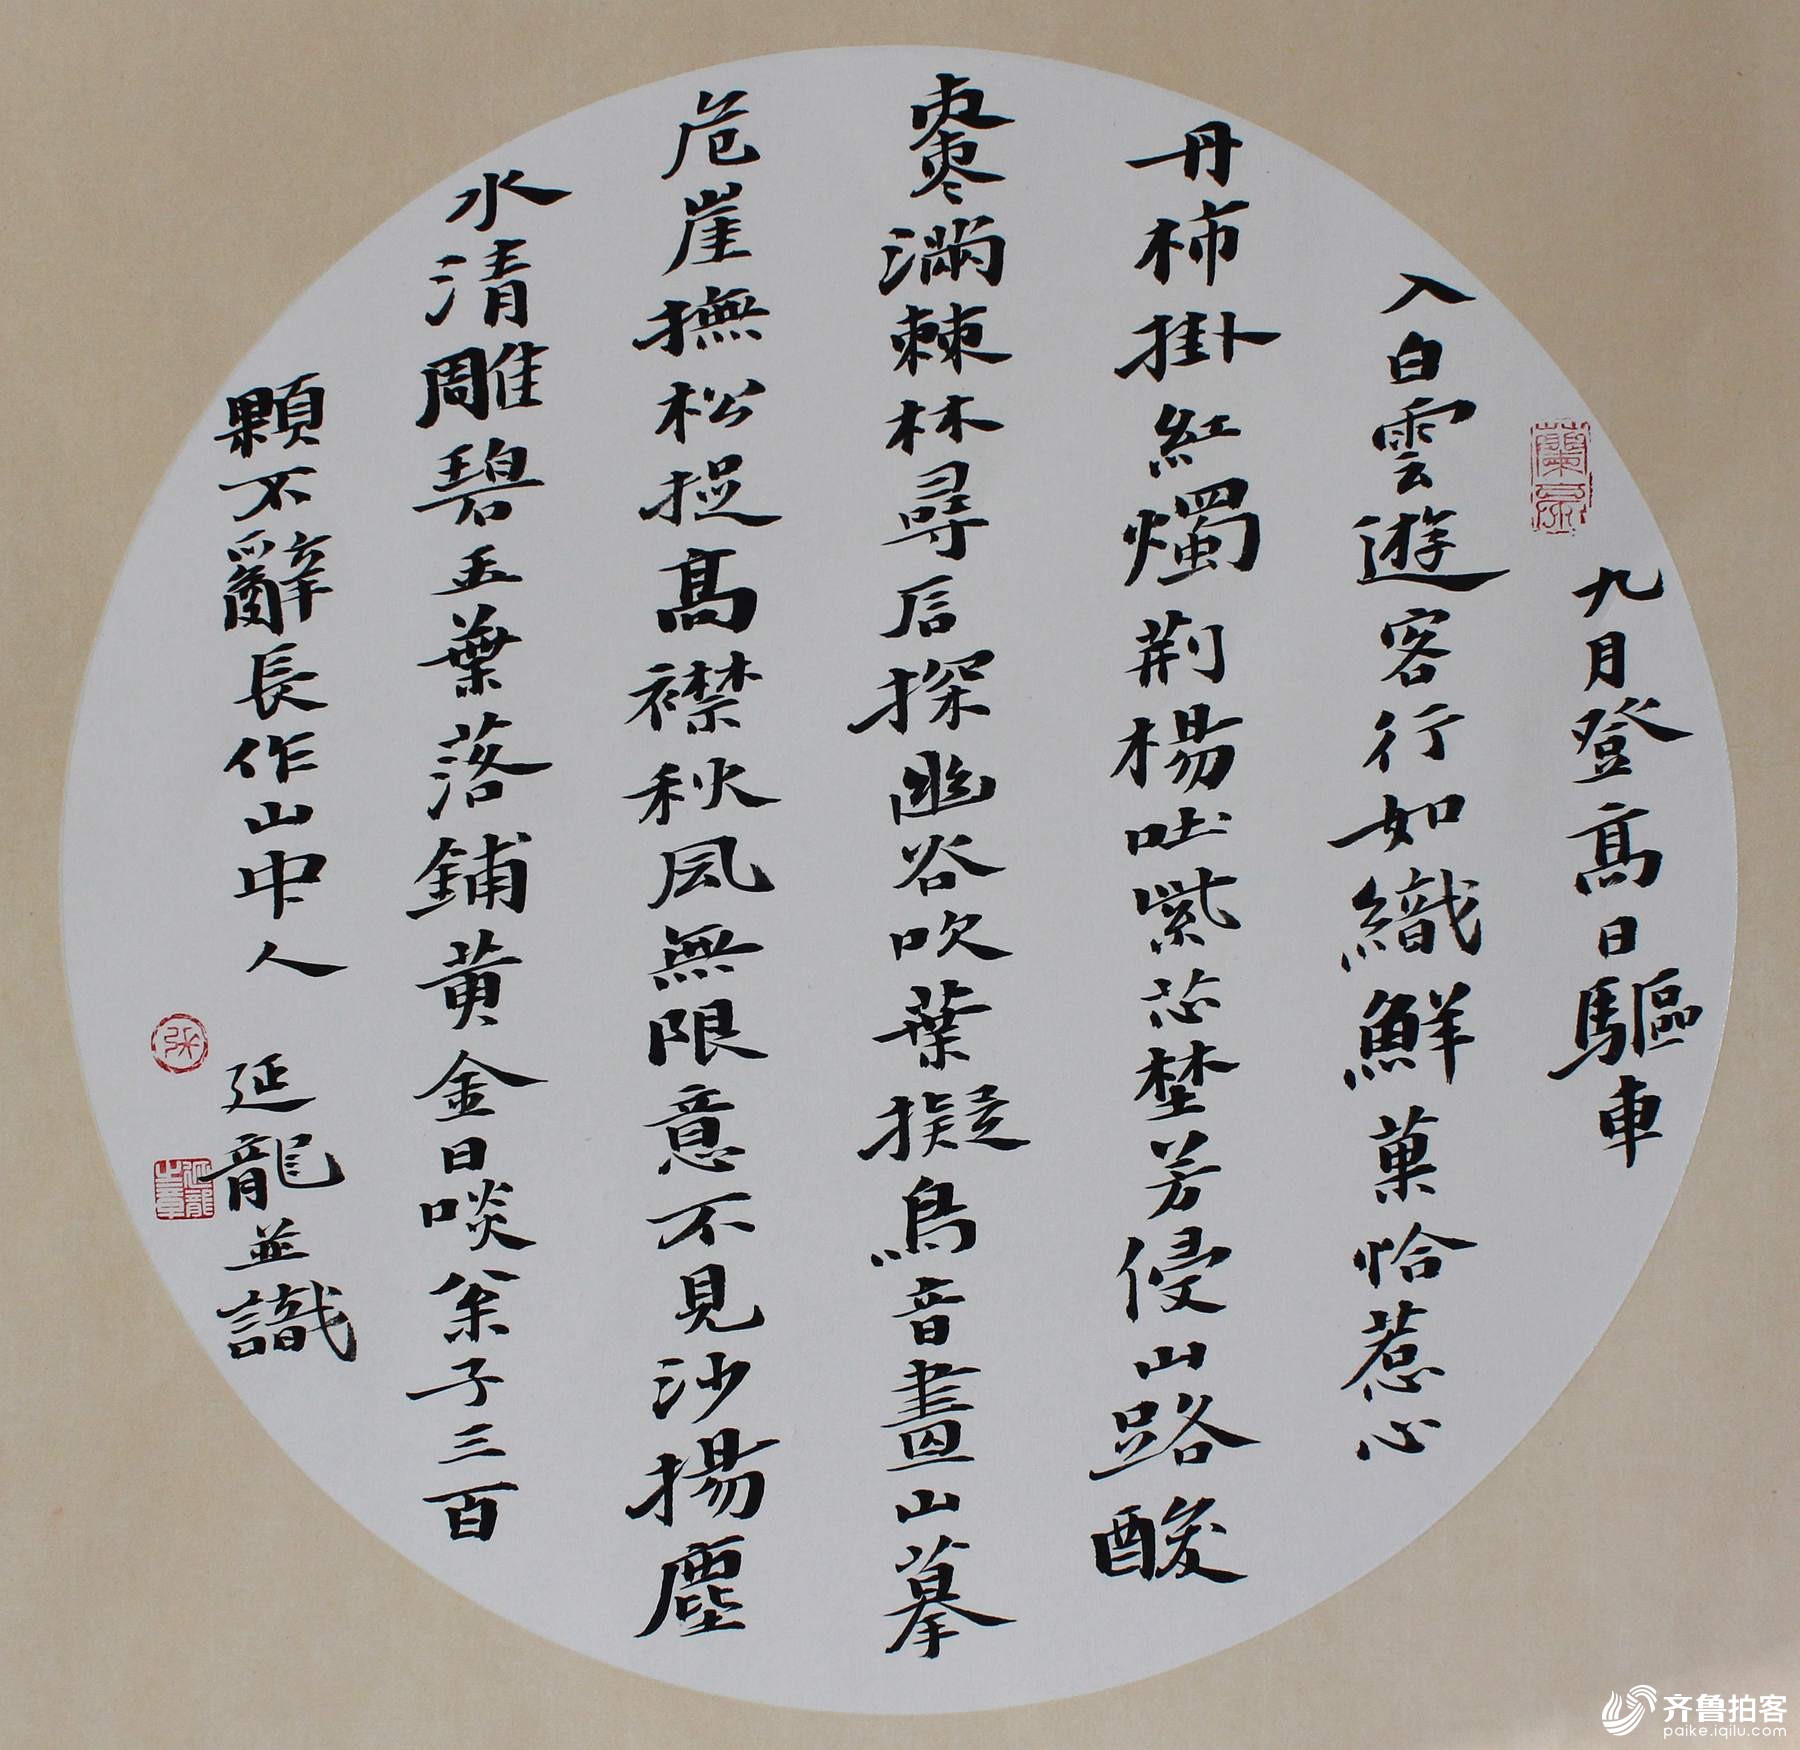 九月登高日驅車
入白雲遊客行如織鮮菓恰惹心
丹柿掛紅燭荆楊吐紫芯埜芳侵山路酸
棗滿棘林尋后探幽谷吹葉擬鳥音畫山摹
危崖撫松捉高襟秋風無限意不見沙揚塵
水清雕碧玉葉落鋪黃金日啖子三百
顆不辭長作山中人 延龍並識
延龍之章
齐鲁拍客
paike.iqilu.com